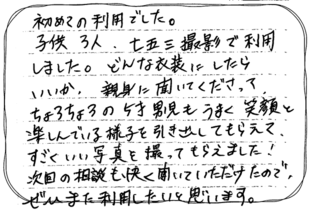 初めての利用でした。
子供3人、七五三撮影で利用
しました。どんな衣装にしたら
いいか、親身に聞いてくださって、
ちょろちょろの5才男児もうまく笑顔と
楽しんでいる様子を引き出してもらえて、
すごくいい写真を撮ってもらえました!
次回の相談も快く聞いていただけたので、
ぜひまた利用したいと思います。